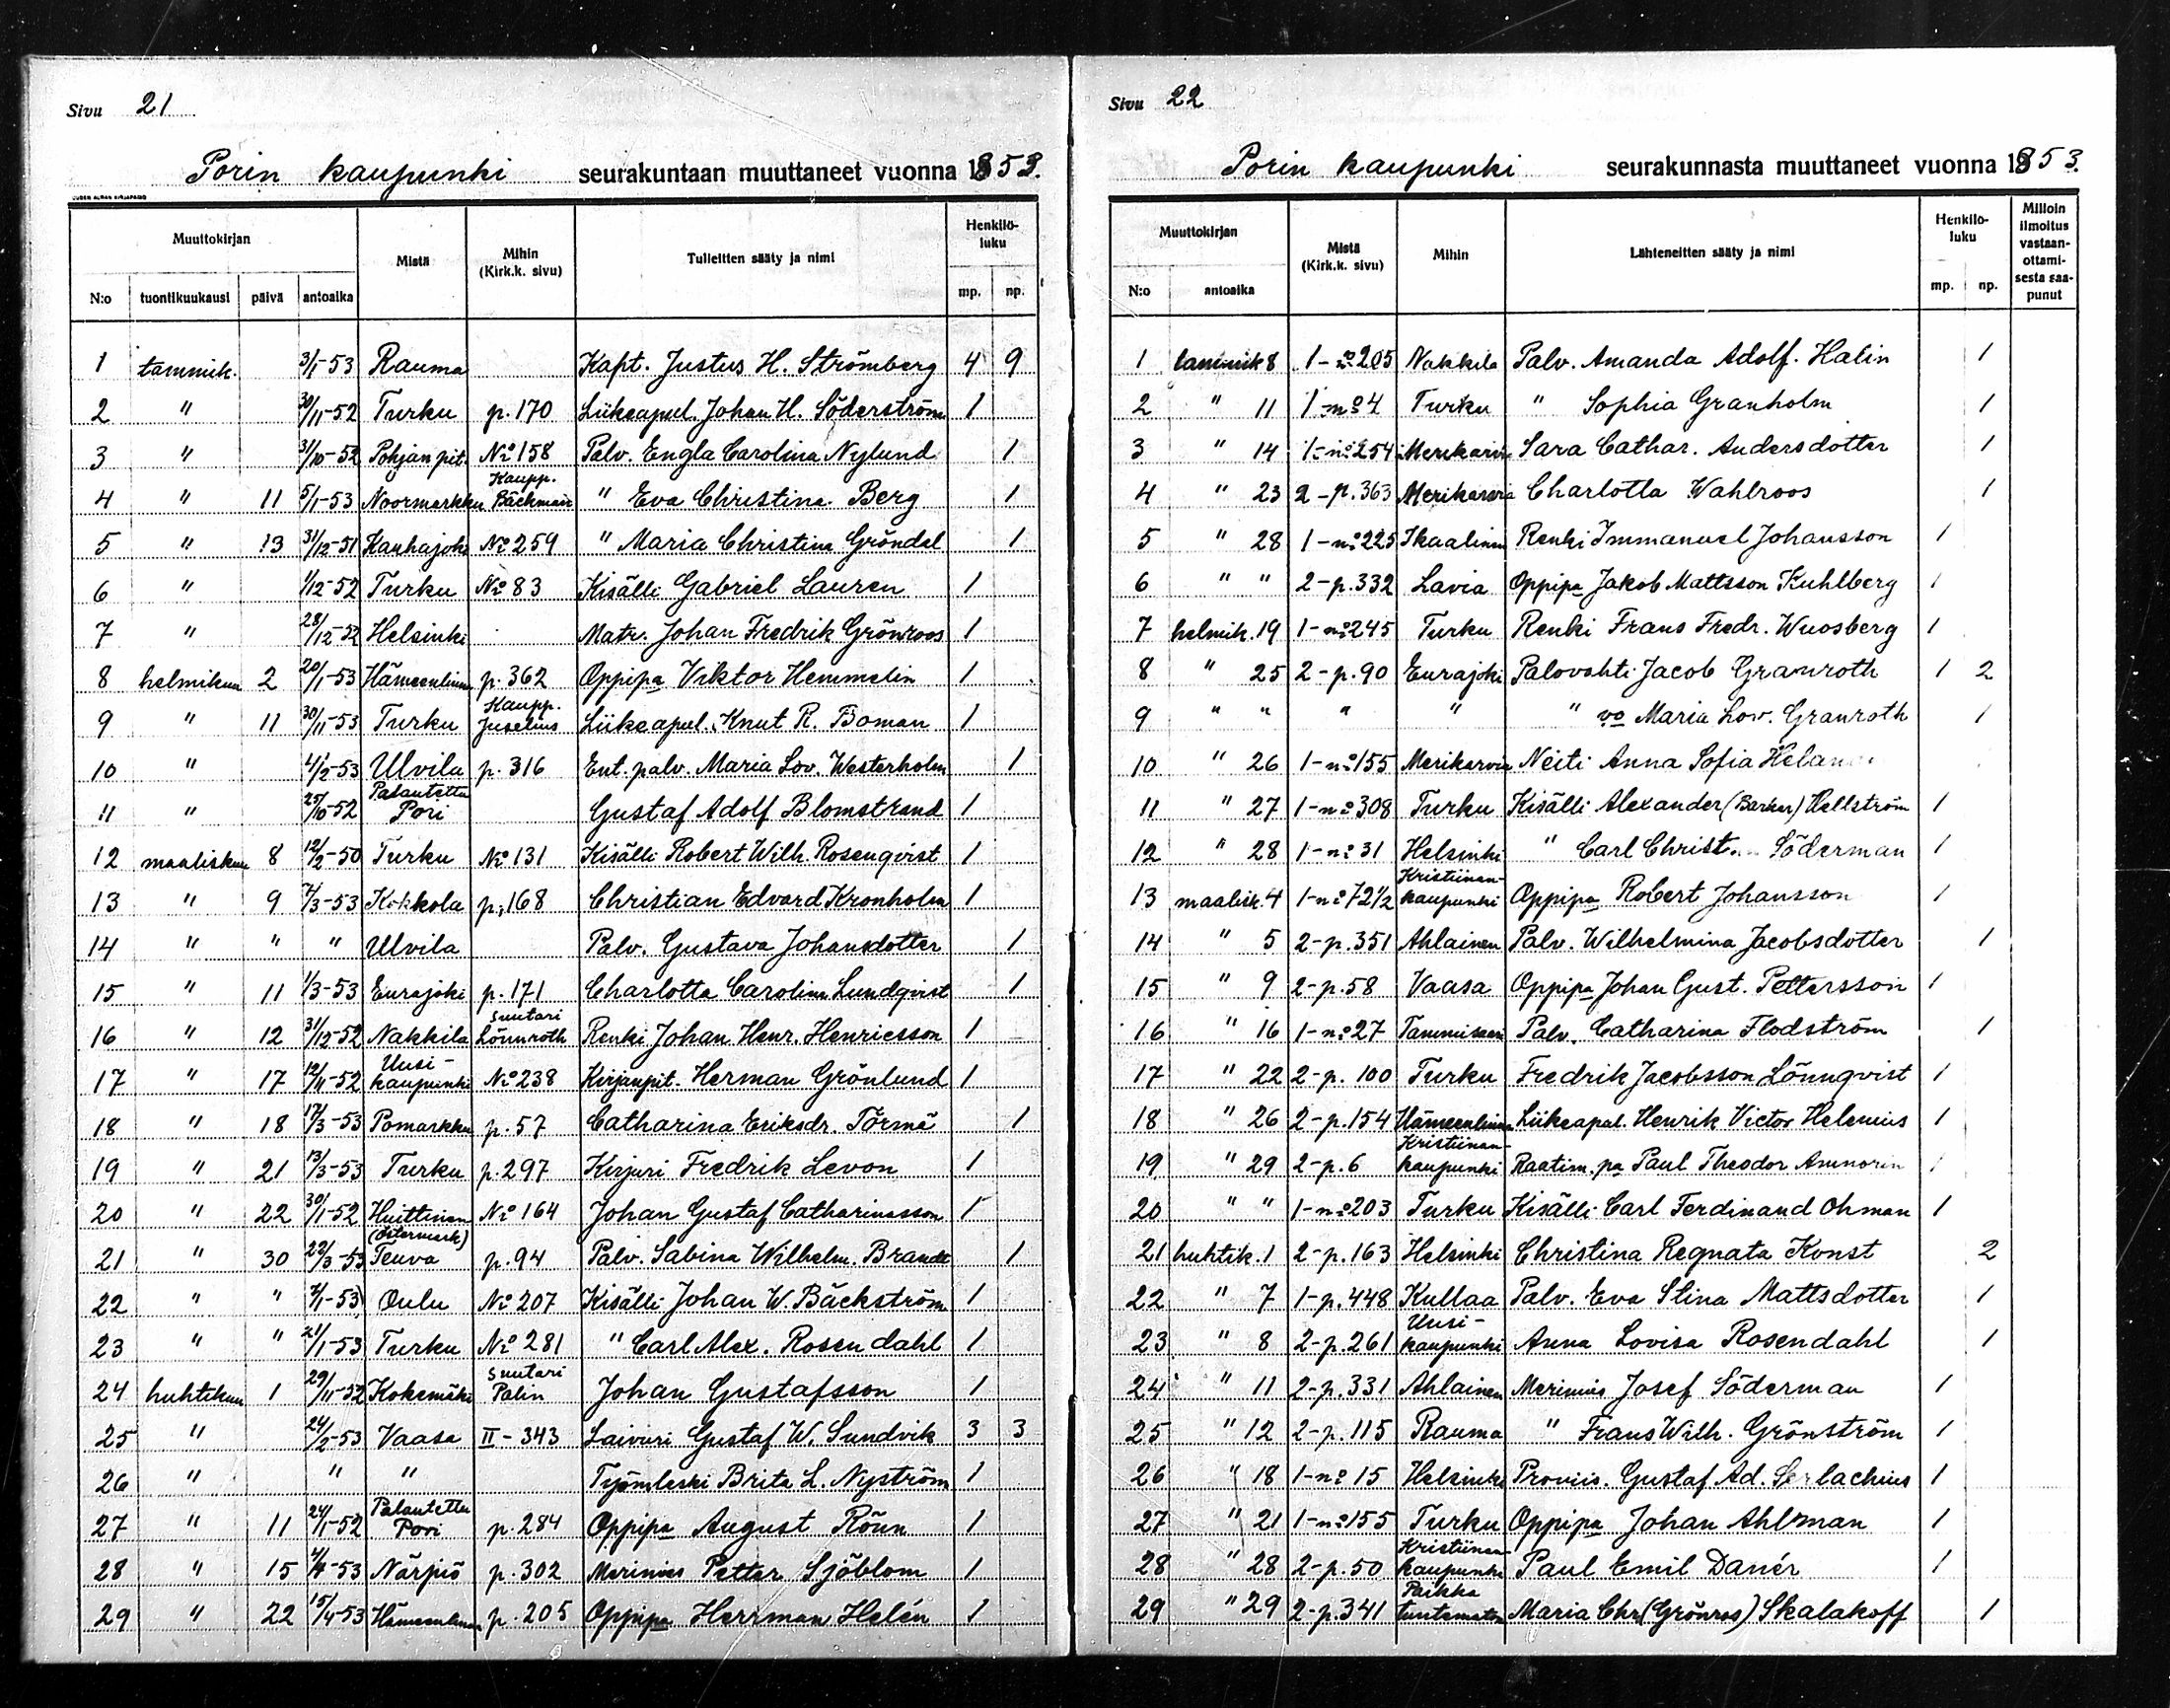 Sivu 21
Porin kaupunki seurakuntaan muuttaneet vuonna 1853.
Muuttokirjan Mistä Mihin (Kirk.k. sivu) Tulleitten sääty ja nimi Henkilöluku
N:o tuontikuukausi päivä antoaika mp. np.
1 tammik. 3/1-53 Rauma Kapt. Justus H. Strömberg 4 9
2 " 30/11-52 Turku p. 170 Liikeapul. Johan H. Söderström 1
3 " 31/10-52 Pohjan pit. No 158 Palv. Engla Carolina Nylund 1
4 " 11 5/1-53 Noormarkku Kaupp. Bäckman " Eva Christina Berg 1
5 " 13 31/12-51 Kauhajoki No 259 " Maria Christina Gröndal 1
6 " 1/12-52 Turku No 83 Kisälli Gabriel Lauren 1
7 " 28/12-52 Helsinki Matr. Johan Fredrik Grönroos 1
8 helmikuu 2 20/1-53 Hämeenlinna p. 362 Oppipa Viktor Hemmelin 1
9 " 11 30/11-53 Turku Kaupp. Juselius Liikeapul. Knut R. Boman 1
10 " 4/2-53 Ulvila p. 316 Ent. palv. Maria Lov. Westerholm 1
11 " 25/10-52 Palautettu Pori Gustaf Adolf Blomstrand 1
12 maaliskuu 8 12/2-50 Turku No 131 Kisälli Robert Wilh. Rosenqvist 1
13 " 9 7/3-53 Kokkola p. 168 Christian Edvard Kronholm 1
14 " " " Ulvila Palv. Gustava Johansdotter 1
15 " 11 1/3-53 Eurajoki p. 171 Charlotta Carolina Lundqvist 1
16 " 12 31/12-52 Nakkila suutari Lönnroth Renki Johan Henr. Henricsson 1
17 " 17 12/11-52 Uusi-kaupunki No 238 Kirjanpit. Herman Grönlund 1
18 " 18 17/3-53 Pomarkku p. 57 Catharina Eriksdr. Törmä 1
19 " 21 13/3-53 Turku p. 297 Kirjuri Fredrik Levon 1
20 " 22 30/1-52 Huittinen No 164 Johan Gustaf Catharinasson 1
21 " 30 22/3-53 (Östermark) Teuva p. 94 Palv. Sabina Wilhelm. Brandt 1
22 " " 7/1-53 Oulu No 207 Kisälli Johan W. Bäckström 1
23 " " 21/1-53 Turku No 281 " Carl Alex. Rosendahl 1
24 huhtikuu 1 29/11-52 Kokemäki suutari Palin Johan Gustafsson 1
25 " 24/2-53 Vaasa II-343 Laivuri Gustaf W. Sundvik 3 3
26 " " " Työmleski Brita L. Nyström 1
27 " 11 24/1-52 Palautettu Pori p. 284 Oppipa August Rönn 1
28 " 15 4/4-53 Närpiö p. 302 Merimies Petter Sjöblom 1
29 " 22 15/4-53 Hämeenlinna p. 205 Oppipa Herrman Helén 1
Sivu 22
Porin kaupunki seurakunnasta muuttaneet vuonna 1853.
Muuttokirjan Mistä (Kirk.k. sivu) Mihin Lähteneitten sääty ja nimi Henkilöluku Milloin ilmoitus vastaanottamisesta saapunut
N:o antoaika mp. np.
1 tammik 8 1-no 205 Nakkila Palv. Amanda Adolf. Halin 1
2 " 11 1-no 4 Turku " Sophia Granholm 1
3 " 14 1-no 254 Merikarvia Sara Cathar. Andersdotter 1
4 " 23 2-p. 363 Merikarvia Charlotta Wahlroos 1
5 " 28 1-no 225 Ikaalinen Renki Immanuel Johansson 1
6 " " 2-p. 332 Lavia Oppipa Jakob Mattsson Kuhlberg 1
7 helmik. 19 1-no 245 Turku Renki Frans Fredr. Wuosberg 1
8 " 25 2-p. 90 Eurajoki Palovahti Jacob Granroth 1 2
9 " " " " " vo Maria Lov. Granroth 1
10 " 26 1-no 155 Merikarvia Neiti Anna Sofia
11 " 27 1-no 308 Turku Kisälli Alexander (Barkar) Hellström 1
12 " 28 1-no 31 Helsinki " Carl Christ. Söderman 1
13 maalisk. 4 1-no 72 1/2 Kristiinan-kaupunki Oppipa Robert Johansson 1
14 " 5 2-p. 351 Ahlainen Palv. Wilhelmina Jacobsdotter 1
15 " 9 2-p. 58 Vaasa Oppipa Johan Gust. Pettersson 1
16 " 16 1-no 27 Tammisaari Palv. Catharina Flodström 1
17 " 22 2-p. 100 Turku Fredrik Jacobsson Lönnqvist 1
18 " 26 2-p. 154 Hämeenlinna Liikeapul. Henrik Victor Helenius 1
19 " 29 2-p. 6 Kristiinan-kaupunki Raatim. pa Paul Theodor Ammorin 1
20 " " 1-no 203 Turku Kisälli Carl Ferdinand Ohman 1
21 huhtik. 1 2-p. 163 Helsinki Christina Regnata Konst 2
22 " 7 1-p. 448 Kullaa Palv. Eva Stina Mattsdotter 1
23 " 8 2-p. 261 Uusi-kaupunki Anna Lovisa Rosendahl 1
24 " 11 2-p. 331 Ahlainen Merimies Josef Söderman 1
25 " 12 2-p. 115 Rauma " Frans Wilh. Grönström 1
26 " 18 1-no 15 Helsinki Proviis. Gustaf Ad. Serlachius 1
27 " 21 1-no 155 Turku Oppipa Johan Ahlman 1
28 " 28 2-p. 50 Kristiinan-kaupunki Paul Emil Danér 1
29 " 29 2-p. 341 Paikka tuntematon Maria Chr. (Grönros) Skalakoff 1